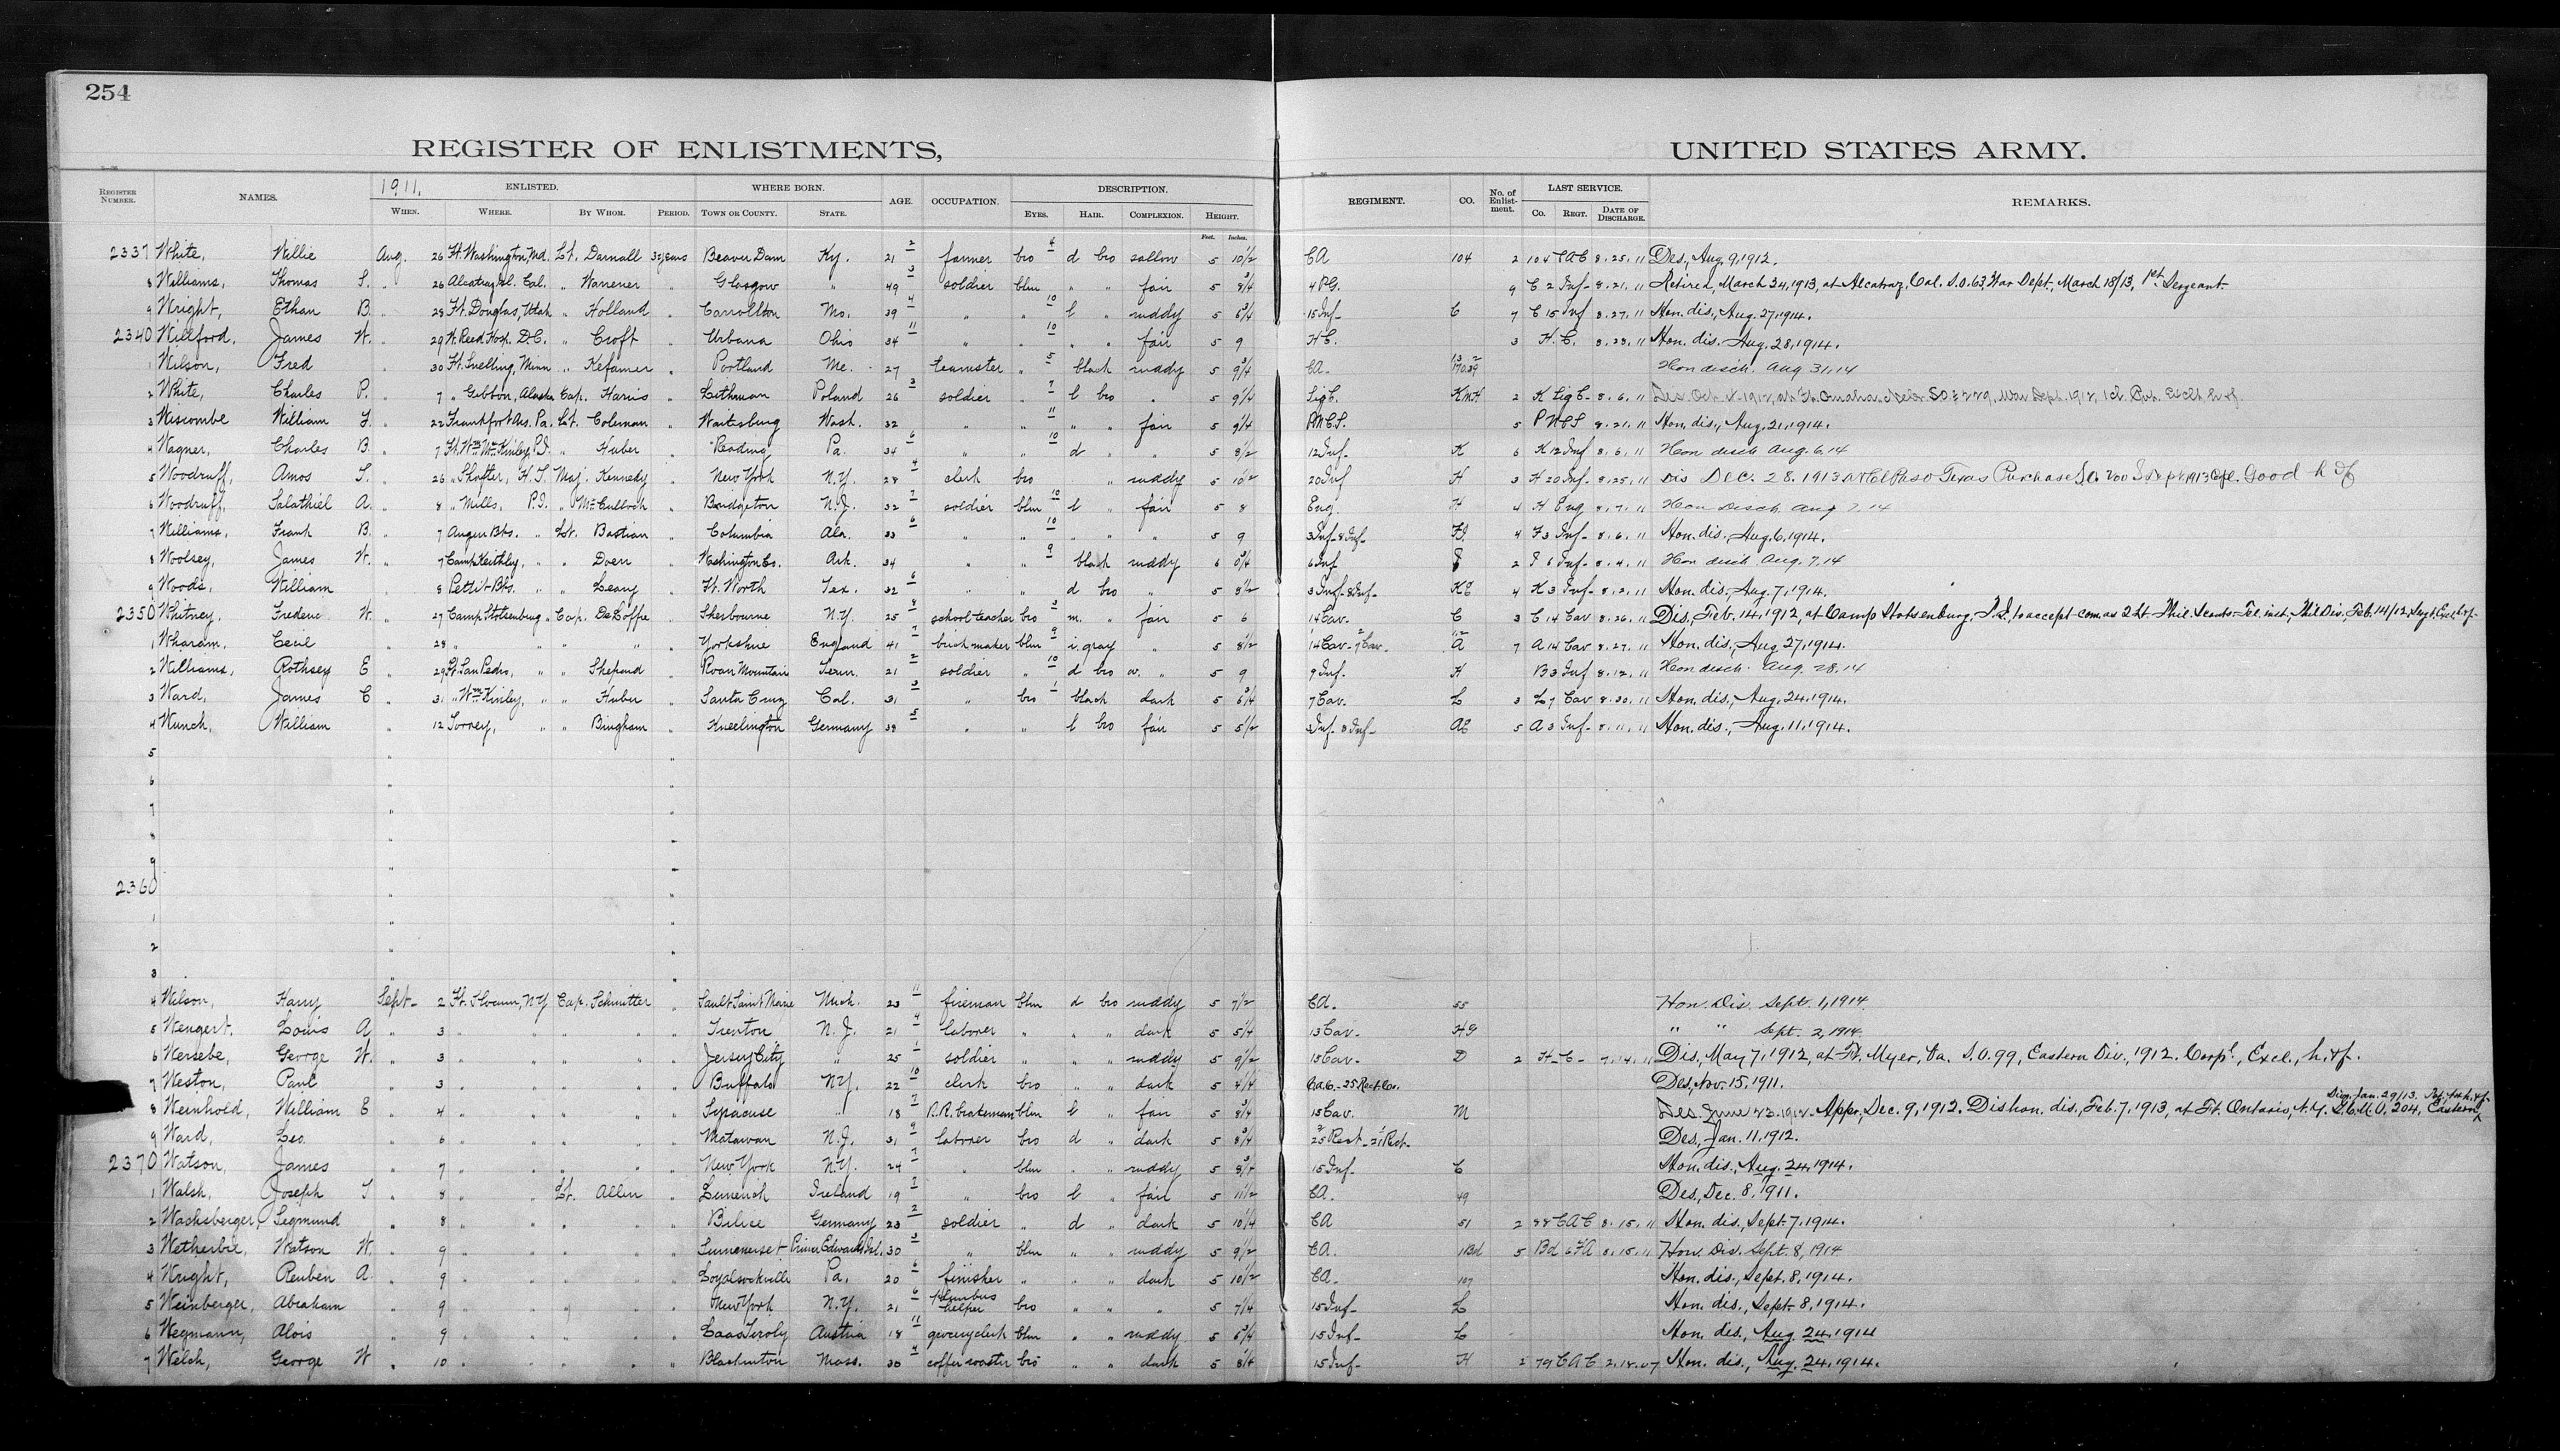 254
REGISTER OF ENLISTMENTS, UNITED STATES ARMY.
REGISTER NUMBER. NAMES. 1911. ENLISTED. WHERE BORN. AGE. OCCUPATION. DESCRIPTION. REGIMENT. CO. No. of Enlistment. LAST SERVICE. REMARKS.
WHEN. WHERE. BY WHOM. PERIOD. TOWN OR COUNTY. STATE. EYES. HAIR. COMPLEXION. HEIGHT. Co. REGT. DATE OF DISCHARGE.
Feet. Inches.
2337 White, Willie Aug. 26 Ft. Washington, Md. Lt. Darnall 3 years Beaver Dam Ky. 21 2/ farmer bro 4 d bro sallow 5 10 1/2 CA 104 2 104 CAC 8.25.11 Des., Aug. 9, 1912.
8 Williams, Thomas S. " 26 Alcatraz Isl. Cal. " Warrener " Glasgow " 49 3 soldier blu " " fair 5 8 3/4 4 PG. 9 C 2 Inf 8.21.11 Retired, March 24, 1913, at Alcatraz, Cal. S.O. 63, War Dept., March 18/13, 1st Sergeant
9 Wright, Ethan B. " 28 Ft. Douglas, Utah " Holland " Carrollton Mo. 39 4 " " 10 l " ruddy 5 6 3/4 15 Inf C 7 C 15 Inf 8.27.11 Hon. dis., Aug. 27, 1914.
2340 Willford, James W. " 29 W. Reed Hosp. D.C. " Croft " Urbana Ohio 34 11 " " 10 " " fair 5 9 H.C. 3 H.C. 8.28.11 Hon. dis. Aug. 28, 1914.
1 Wilson, Fred " 30 Ft. Snelling, Minn " Kefauver " Portland Me. 27 teamster " 5 black ruddy 5 9 3/4 CA. Hon disch. Aug 31, 14
2 White, Charles P. " 7 " Gibbon, Alaska Cap. Harris " Lothman Poland 26 3 soldier " 7 l bro " 5 9 1/4 Sig C. K 2 K Sig C 8.6.11
3 Wiscombe William F. " 22 Frankfort Ars. Pa. Lt. Coleman " Waitsburg Wash. 32 " " 11 " " fair 5 9 1/4 5 8.21.11 Hon. dis., Aug. 21, 1914.
4 Wagner, Charles B. " 7 Ft. Wm McKinley, P.I. " Huber " Reading Pa. 34 6 " " 10 d " " 5 8 1/2 12 Inf K 6 K 12 Inf 8.6.11 Hon disch Aug. 6, 14
5 Woodruff, Amos S. " 26 " Shafter, H.T. Maj. Kennedy " New York N.Y. 28 4 clerk bro " ruddy 5 10 1/2 20 Inf H 3 H 20 Inf 8.25.11 Dis Dec. 28. 1913 at El Paso Texas Purchase Good h & f
6 Woodruff, Salathiel A. " 8 " Mills, P.I. " McCulloch " Bridgeton N.J. 32 7 soldier blu 10 l " fair 5 8 Eng. H 4 H Eng 8.7.11 Hon Disch Aug 7, 14
7 Williams, Frank B. " 7 Augur Bks. " Lt. Bastian " Columbia Ala. 33 6 " " 10 " " " 5 9 3 Inf - 8 Inf 4 F 3 Inf 8.6.11 Hon. dis., Aug. 6, 1914.
8 Woolsey, James W. " 7 Camp Keithley, " " Doerr " Washington Co. Ark. 34 " " 9 black ruddy 6 0 3/4 6 Inf I 2 I 6 Inf 8.4.11 Hon disch Aug. 7, 14
9 Woods, William " 8 Pettit Bks. " " Leary " Ft. Worth Tex. 32 6 " " d bro " 5 8 1/2 3 Inf - 8 Inf 4 K 3 Inf 8.2.11 Hon. dis., Aug. 7, 1914.
2350 Whitney, Frederic W. " 27 Camp Stotsenburg " Cap. DeLoffre " Sherbourne N.Y. 25 8 school teacher bro 3 m. " fair 5 6 14 Cav. C 3 C 14 Cav 8.26.11 Dis., Feb. 14, 1912, at Camp Stotsenburg, P.I. to accept com. as 2 Lt. Phil. Scouts
1 Wharam, Cecil " 28 " " " " Yorkshire England 41 7 brick maker blu 9 i gray " 5 8 1/2 14 Cav - 9 Cav. A 7 A 14 Cav 8.27.11 Hon. dis., Aug 27, 1914.
2 Williams, Rothsey E " 29 Ft. San Pedro, " " Shepard " Roan Mountain Tenn. 21 2 soldier " 10 d bro " 5 9 9 Inf. H B 3 Inf 8.12.11 Hon disch. Aug. 28, 14
3 Ward, James C " 31 " Wm McKinley, " " Huber " Santa Cruz Cal. 31 3 " bro 1 black dark 5 6 3/4 7 Cav. L 3 L 7 Cav 8.30.11 Hon. dis., Aug. 24, 1914.
4 Wunch, William " 12 Torrey, " " Bingham " Kneelington Germany 38 5 " " l bro fair 5 5 1/2 3 Inf - 8 Inf 5 A 3 Inf 8.11.11 Hon. dis., Aug. 11, 1914.
5 " "
6 " "
7 " "
8 " "
9 " "
2360 " "
1 " "
2 " "
3 " "
4 Wilson, Harry Sept 2 Ft. Slocum, N.Y. Cap. Schmitter " Sault Saint Marie Mich. 23 11 fireman blu d bro ruddy 5 7 1/2 CA. 55 Hon. Dis. Sept. 1, 1914
5 Wengert, Louis A " 3 " " " " Trenton N.J. 21 4 laborer " " " dark 5 5 1/4 13 Cav. " " Sept. 2, 1914
6 Wersebe, George W. " 3 " " " " Jersey City " 25 1 soldier " " " ruddy 5 9 1/2 15 Cav. D 2 H.C. 7.14.11 Dis., May 7, 1912, at Ft. Myer, Va. S.O. 99, Eastern Div., 1912. Corpl., Excl., h. & f.
7 Weston, Paul " 3 " " " " Buffalo N.Y. 22 10 clerk bro " " dark 5 4 1/4 Des., Nov. 15, 1911.
8 Weinhold, William E " 4 " " " " Syracuse " 18 7 R.R. brakeman blu l " fair 5 8 3/4 15 Cav. M Des. June 23. 1912. App., Dec. 9, 1912. Dishon. dis., Feb. 7, 1913, at Ft. Ontario, N.Y. G.C.M.O. 204, Eastern Div., Jan. 29/13.
9 Ward, Leo. " 6 " " " " Matawan N.J. 31 9 laborer bro d " dark 5 8 3/4 Des., Jan. 11, 1912.
2370 Watson, James " 7 " " " " New York N.Y. 24 7 " blu " " ruddy 5 8 3/4 15 Inf C Hon. dis., Aug. 24, 1914.
1 Walsh, Joseph T " 8 " " Lt. Allen " Limerick Ireland 19 7 " bro l " fair 5 11 1/2 CA. 49 Des., Dec. 8, 1911.
2 Wachsberger, Segmund " 8 " " " " Germany 23 2 soldier " d " dark 5 10 1/4 CA 51 2 88 CAC 8.15.11 Hon. dis., Sept. 7, 1914.
3 Wetherbie, Watson W. " 9 " " " " Summerset Prince Edwards Isl. 30 3 " blu " " ruddy 5 9 1/2 CA. 1 Bd 5 Bd 6 FA 8.15.11 Hon. Dis. Sept. 8, 1914
4 Wright, Reuben A. " 9 " " " " Loyalsockville Pa. 20 6 finisher " " " dark 5 10 1/2 CA. 107 Hon. dis., Sept. 8, 1914.
5 Weinberger, Abraham " 9 " " " " New York N.Y. 21 6 plumbus helper bro " " " 5 7 1/4 15 Inf L Hon. dis., Sept. 8, 1914.
6 Wegmann, Alois " 9 " " " " Austria 18 11 grocery clerk blu " " ruddy 5 6 3/4 15 Inf L Hon. dis., Aug. 24, 1914
7 Welch, George W " 10 " " " " Blackinton Mass. 30 4 coffee roaster bro " " dark 5 8 1/4 15 Inf H 2 79 CAC 2.18.07 Hon. dis., Aug. 24, 1914.